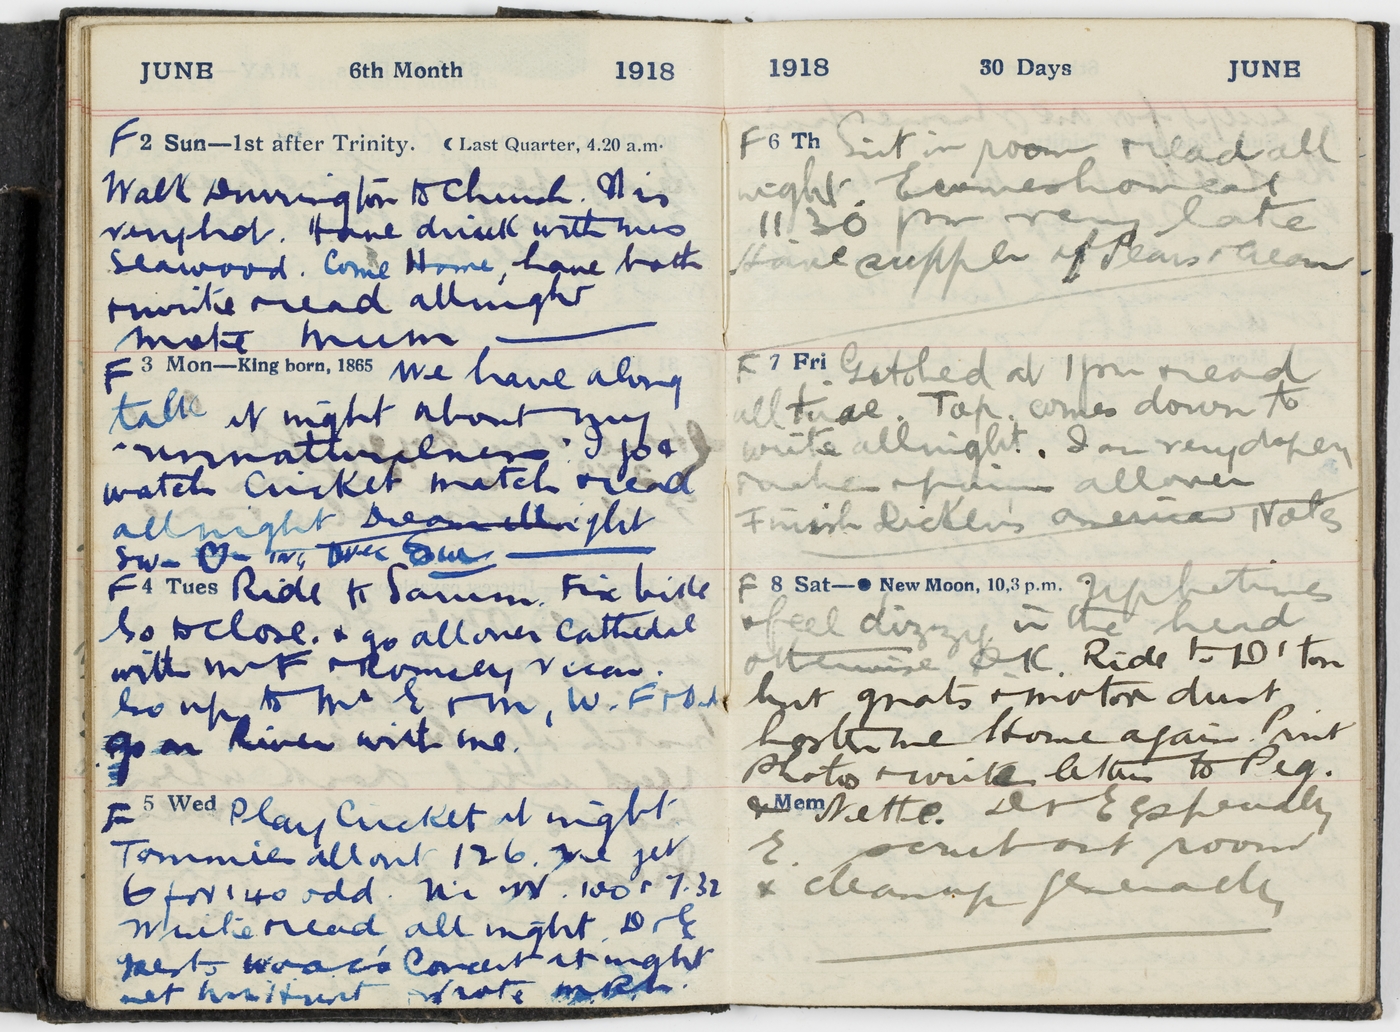 JUNE 6th Month 1918
F 2 Sun—1st after Trinity. ☾ Last Quarter, 4.20 a.m.
Walk Durrington to Church. It is
very hot. Have drink with mrs
Seawood. Come Home, have bath
+ write + read all night
Mum
F 3 Mon—King born, 1865 We have a long
talk at night about my
"unnaturalness" I go &
watch Cricket match + read
all night
F 4 Tues Ride to Sarum. Fix bike
Go to Close. + go all over Cathedal
with Mr F + Romsey Vicar.
Go up to Mrs E + M, W. F + Dad
go on River with me.
F 5 Wed Play Cricket at night
Tommies all out 126. We get
6 for 140 odd. Mr W. 100 + 7.32
Write + read all night. D + E
go to Concert at night
met Hurst wrote
1918 30 Days JUNE
F 6 Th Sit in room + read all
night. E comes home at
11 30 pm very late
Have supper of Pears + Cream
F 7 Fri Got to bed at 1 pm + read
all time. Tap. comes down to
write all night. I am very
aches + pains all over
Finish Dicken's American Notes
F 8 Sat—● New Moon, 10,3 p.m. Up betimes
+ feel dizzy in the head
otherwise O K. Ride to D'ton
but gnats + motor dust
Home again. Print
Photos + write letters to Peg.
Mem + Nette. D + E especially
E. scrub out room
+ clean up generally